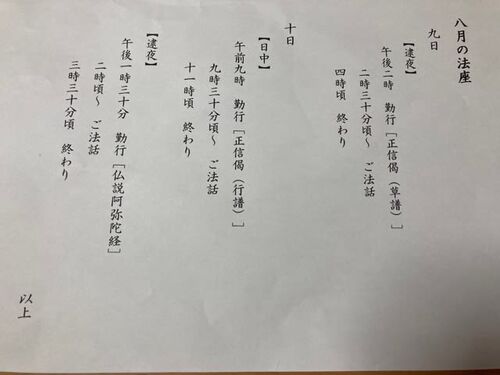 八月の法座
九日
【逮夜】
午後二時　勤行［正信偈（草譜）］
二時三十分頃～　ご法話
四時頃　終わり
十日
【日中】
午前九時　勤行［正信偈（行譜）］
九時三十分頃～　ご法話
十一時頃　終わり
【逮夜】
午後一時三十分　勤行［仏説阿弥陀経］
二時頃～　ご法話
三時三十分頃　終わり
以上